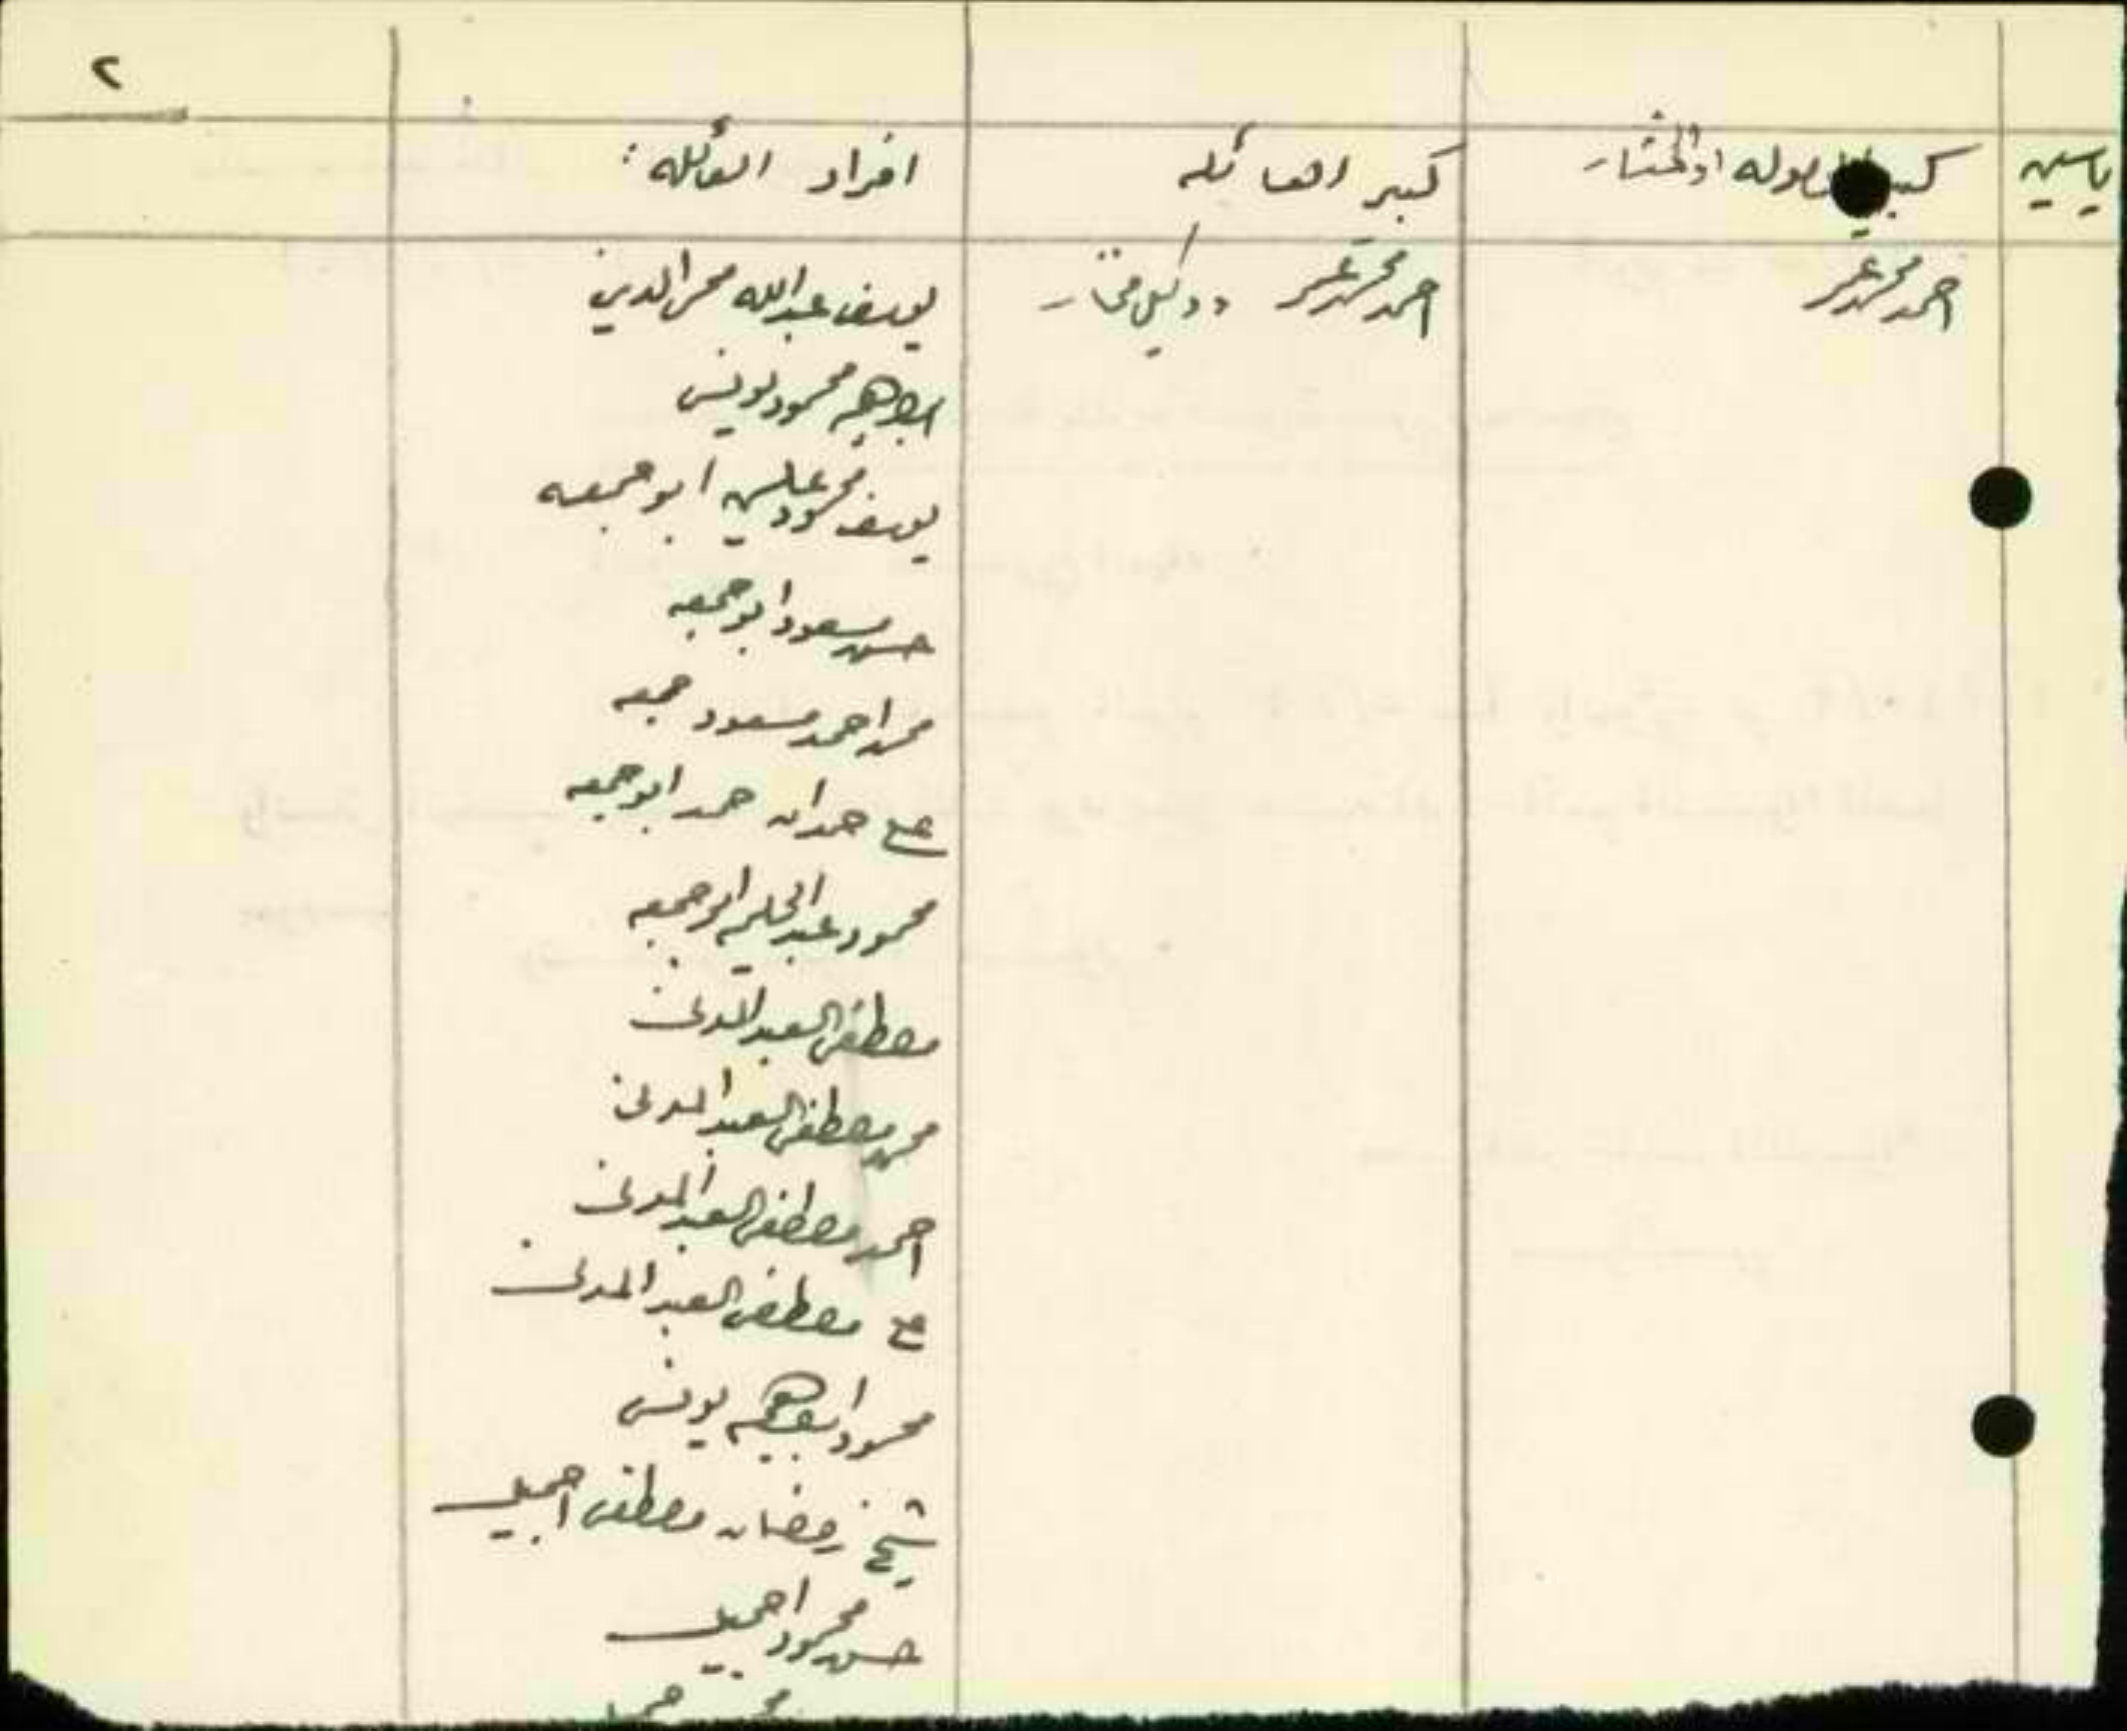 ٢
ياسين
كبير الحامولة او المختار
كبير العائله
افراد العائله :
احمد محمد عمر
احمد محمد عمر ووكيل مختار
يوسف عبدالله محي الدين
ابراهيم محمود يونس
يوسف محمود علي ابو جمعه
حسن مسعود ابو جمعه
محمد احمد مسعود جمعه
علي حمدان حمد ابو جمعه
محمود عبد الحليم ابو جمعه
مصطفى العبد المدني
محمد مصطفى العبد المدني
احمد مصطفى العبد المدني
علي مصطفى العبد المدني
محمود ابراهيم يونس
شيخ رمضان مصطفى اجميل
حسن محمود اجميل